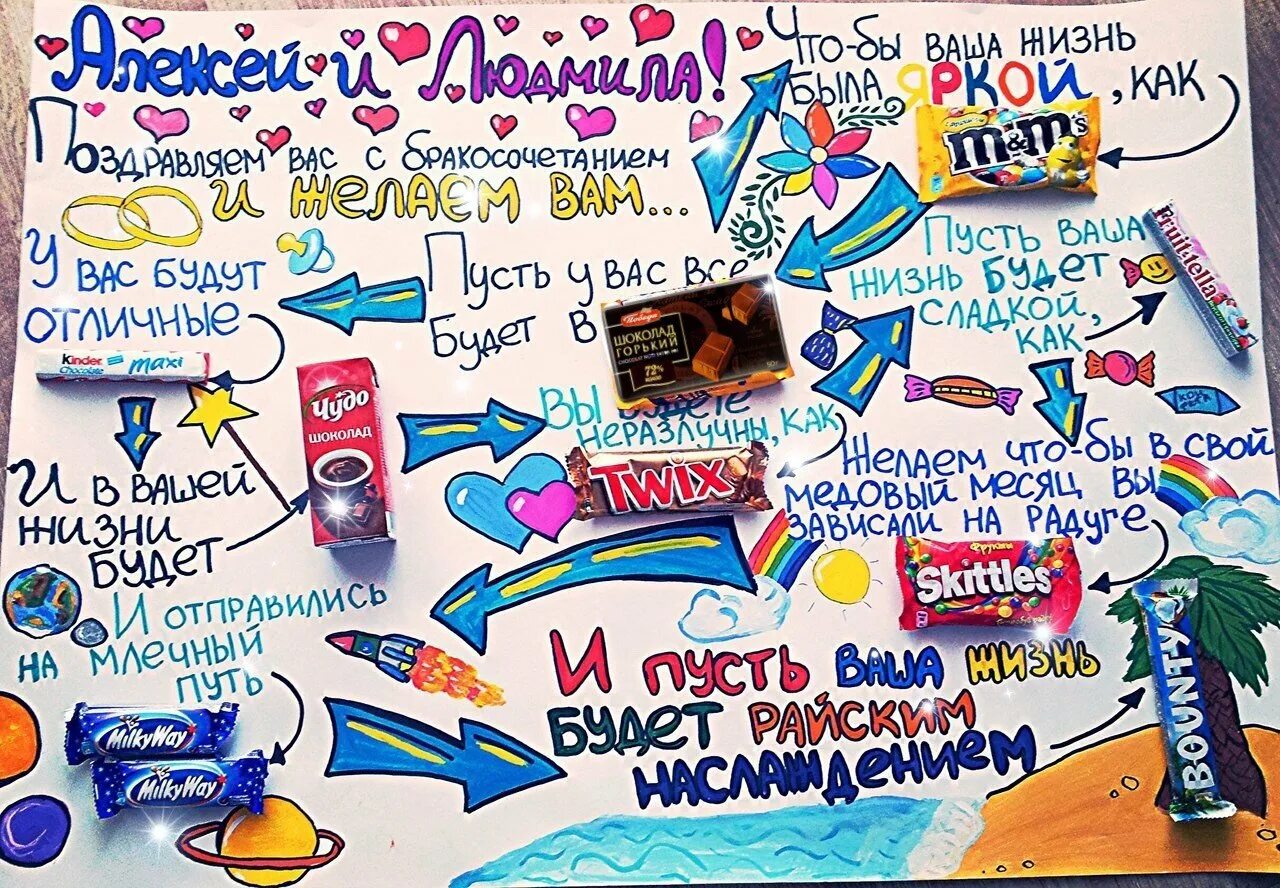 Алексей и Людмила!
Поздравляем вас с бракосочетанием
и желаем вам...
Что-бы ваша жизнь
была яркой, как
m&m's
Пусть у вас все
будет в
Победа
ШОКОЛАД
ГОРЬКИЙ
72%
У вас будут
отличные
Kinder
Chocolate
maxi
И в вашей
жизни
будет
Чудо
ШОКОЛАД
Вы будете
неразлучны, как
TWIX
Пусть ваша
жизнь будет
сладкой,
как
Fruittella
Желаем что-бы в свой
медовый месяц вы
зависали на радуге
Фрукты
Skittles
И отправились
на млечный
путь
MilkyWay
MilkyWay
И пусть ваша жизнь
будет райским
наслаждением
BOUNTY